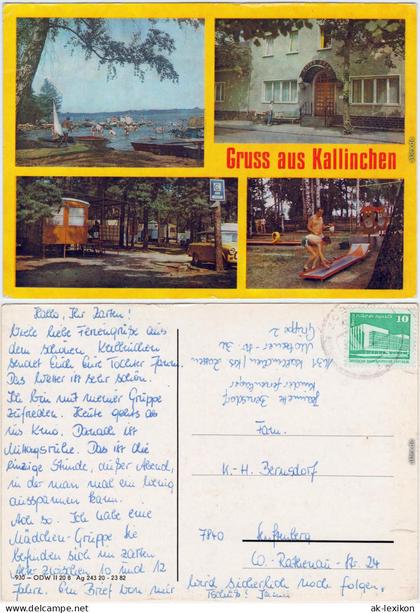 Gruss aus Kallinchen
Hallo, Ihr Zarten!
Viele liebe Feriengrüße aus
dem schönen Kallinchen
sendet Euch Eure Tochter
Das Wetter ist sehr schön.
Ich bin mit meiner Gruppe
zufrieden. Heute gehts ab
ins Kino. Danach ist
Mittagsruhe. Das ist die
einzige Stunde, außer Abend,
in der man mal ein wenig
ausspannen kann.
Ach so. Ich habe eine
Mädchen-Gruppe. Sie
befinden sich im zarten
Alter zwischen 10 und 12
Jahre. Ein Brief von mir
wird sicherlich noch folgen.
Tschüß!
Bernsdorf
Kinderferienlager
1631 Kallinchen / Krs. Zossen
Gruppe 2
10
Fam.
K.-H. Bernsdorf
7840 Senftenberg
W.-Rathenau-Str. 24
930 - ODW II 20 8 Ag 243 20 - 23 82
© ak-lexikon.com
ak-lexikon